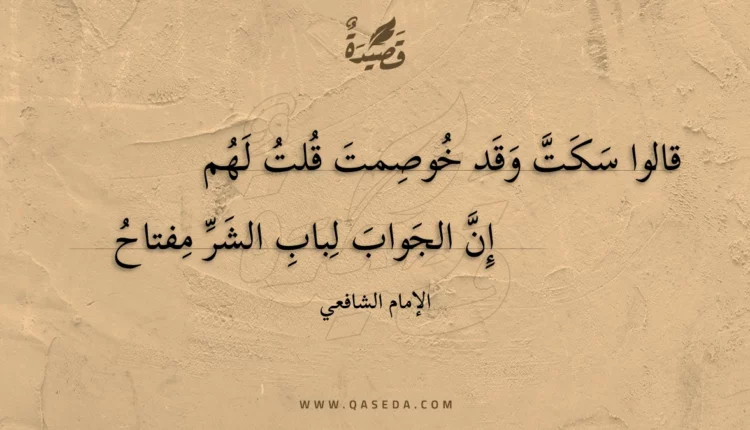 قَصِيْدَةٌ
قالوا سَكَتَّ وَقَد خُوصِمتَ قُلتُ لَهُم
إِنَّ الجَوابَ لِبابِ الشَرِّ مِفتاحُ
الإمام الشافعي
WWW.QASEDA.COM